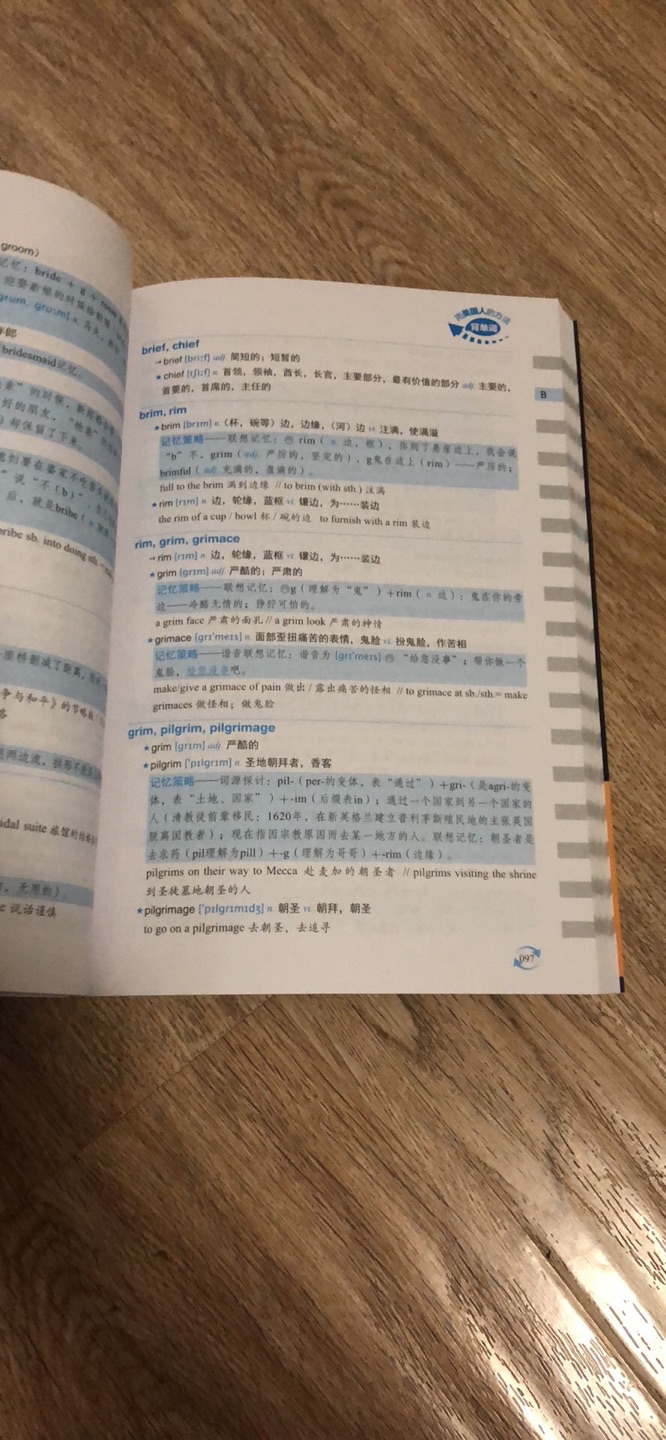 groom）
记忆：bride + g + room
迎娶新娘的时候给新娘
grum, gru:m] n. 马夫，新郎
伴郎
bridesmaid记忆。
"说"不（b）"
后，就是bribe（
bribe sb. into doing sth.
争与和平》的节略版
idal suite 旅馆的
，无用的）。
e 说话谨慎
用美国人的方法
背单词
B
brief, chief
→brief [bri:f] adj. 简短的；短暂的
★chief [tʃi:f] n. 首领，领袖，酋长，长官，主要部分，最有价值的部分 adj. 主要的，
首要的，首席的，主任的
brim, rim
★brim [brɪm] n.（杯，碗等）边，边缘，（河）边 v.t. 注满，使满溢
记忆策略——联想记忆：rim（n. 边，框），你到了悬崖边上，我会说
"b"不，grim（adj. 严厉的，坚定的），g鬼在边上（rim）——严厉的；
brimful（adj. 充满的，盈满的）。
full to the brim 满到边缘 // to brim (with sth.) 注满
★rim [rɪm] n. 边，轮缘，蓝框 v.t. 镶边，为……装边
the rim of a cup / bowl 杯 / 碗的边 to furnish with a rim 装边
rim, grim, grimace
→rim [rɪm] n. 边，轮缘，蓝框 v.t. 镶边，为……装边
★grim [grɪm] adj. 严酷的；严肃的
记忆策略——联想记忆：g（理解为"鬼"）+rim（n. 边）：鬼在你的旁
边——冷酷无情的；狰狞可怕的。
a grim face 严肃的面孔 // a grim look 严肃的神情
★grimace [grɪ'meɪs] n. 面部歪扭痛苦的表情，鬼脸 v.i. 扮鬼脸，作苦相
记忆策略——谐音联想记忆：谐音为 [grɪ'meɪs] "给您没事"：帮你做一个
鬼脸，给您没事吧。
make/give a grimace of pain 做出 / 露出痛苦的怪相 // to grimace at sb./sth.= make
grimaces 做怪相；做鬼脸
grim, pilgrim, pilgrimage
★grim [grɪm] adj. 严酷的
★pilgrim ['pɪlgrɪm] n. 圣地朝拜者，香客
记忆策略——词源探讨：pil-（per-的变体，表"通过"）+gri-（是agri-的变
体，表"土地、国家"）+-im（后缀表in）；通过一个国家到另一个国家的
人（清教徒前辈移民：1620年，在新英格兰建立普利茅斯殖民地的主张英国
脱离国教者）；现在指因宗教原因而去某一地方的人。联想记忆：朝圣者是
去求药（pil理解为pill）+-g（理解为哥哥）+-rim（边缘）。
pilgrims on their way to Mecca 赴麦加的朝圣者 // pilgrims visiting the shrine
到圣徒墓地朝圣的人
★pilgrimage ['pɪlgrɪmɪdʒ] n. 朝圣 v.i. 朝拜，朝圣
to go on a pilgrimage 去朝圣，去追寻
097